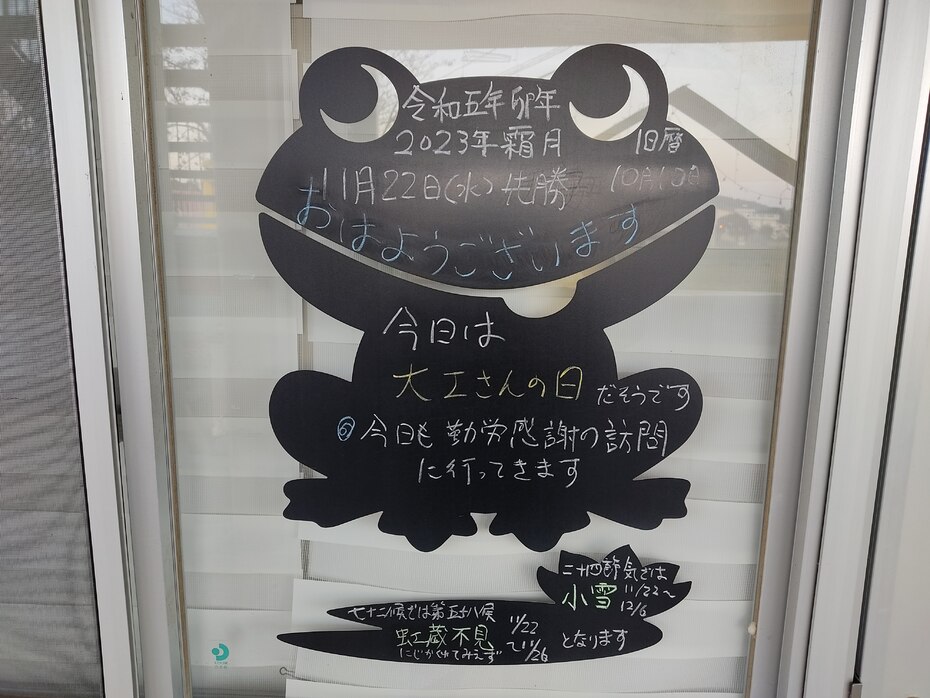 令和五年卯年
2023年霜月 旧暦
11月22日(水)先勝 10月10日
おはようございます
今日は
大工さんの日 だそうです
◎今日も勤労感謝の訪問
に行ってきます
二十四節気では
小雪 11/22~
12/6
七十二候では第五十八候
虹蔵不見 11/22
にじかくれてみえず ~11/26
となります